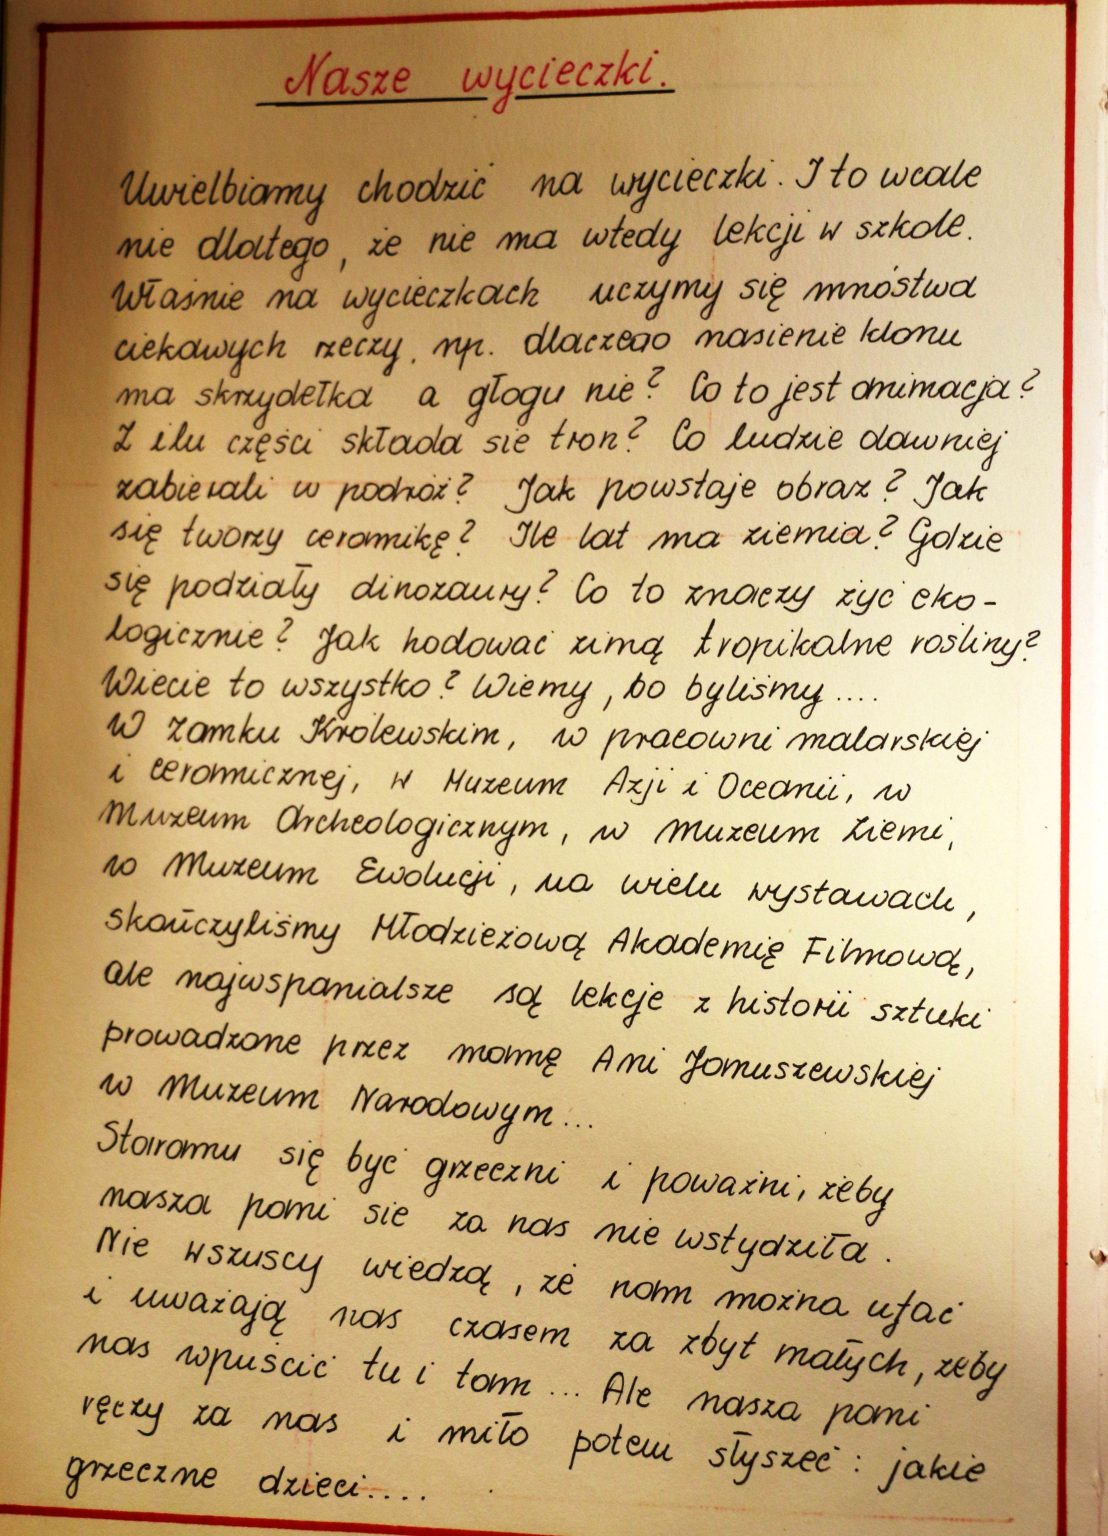 Nasze wycieczki.
Uwielbiamy chodzić na wycieczki. I to wcale
nie dlatego, że nie ma wtedy lekcji w szkole.
Właśnie na wycieczkach uczymy się mnóstwa
ciekawych rzeczy, np. dlaczego nasienie klonu
ma skrzydełka a głogu nie? Co to jest animacja?
Z ilu części składa sie tron? Co ludzie dawniej
zabierali w podróż? Jak powstaje obraz? Jak
się tworzy ceramikę? Ile lat ma ziemia? Gdzie
się podziały dinozaury? Co to znaczy żyć eko-
logicznie? Jak hodować zimą tropikalne rośliny?
Wiecie to wszystko? Wiemy, bo byliśmy....
W Zamku Królewskim, w pracowni malarskiej
i ceramicznej, w Muzeum Azji i Oceanii, w
Muzeum Archeologicznym, w Muzeum Ziemi,
w Muzeum Ewolucji, na wielu wystawach,
skończyliśmy Młodzieżową Akademię Filmową,
ale najwspanialsze są lekcje z historii sztuki
prowadzone przez mamę Ani Jomuszewskiej
w Muzeum Narodowym...
Staramy się być grzeczni i poważni, żeby
nasza pani sie za nas nie wstydziła.
Nie wszyscy wiedzą, że nam można ufać
i uważają nas czasem za zbyt małych, żeby
nas wpuścić tu i tam... Ale nasza pani
ręczy za nas i miło potem słyszeć: jakie
grzeczne dzieci....